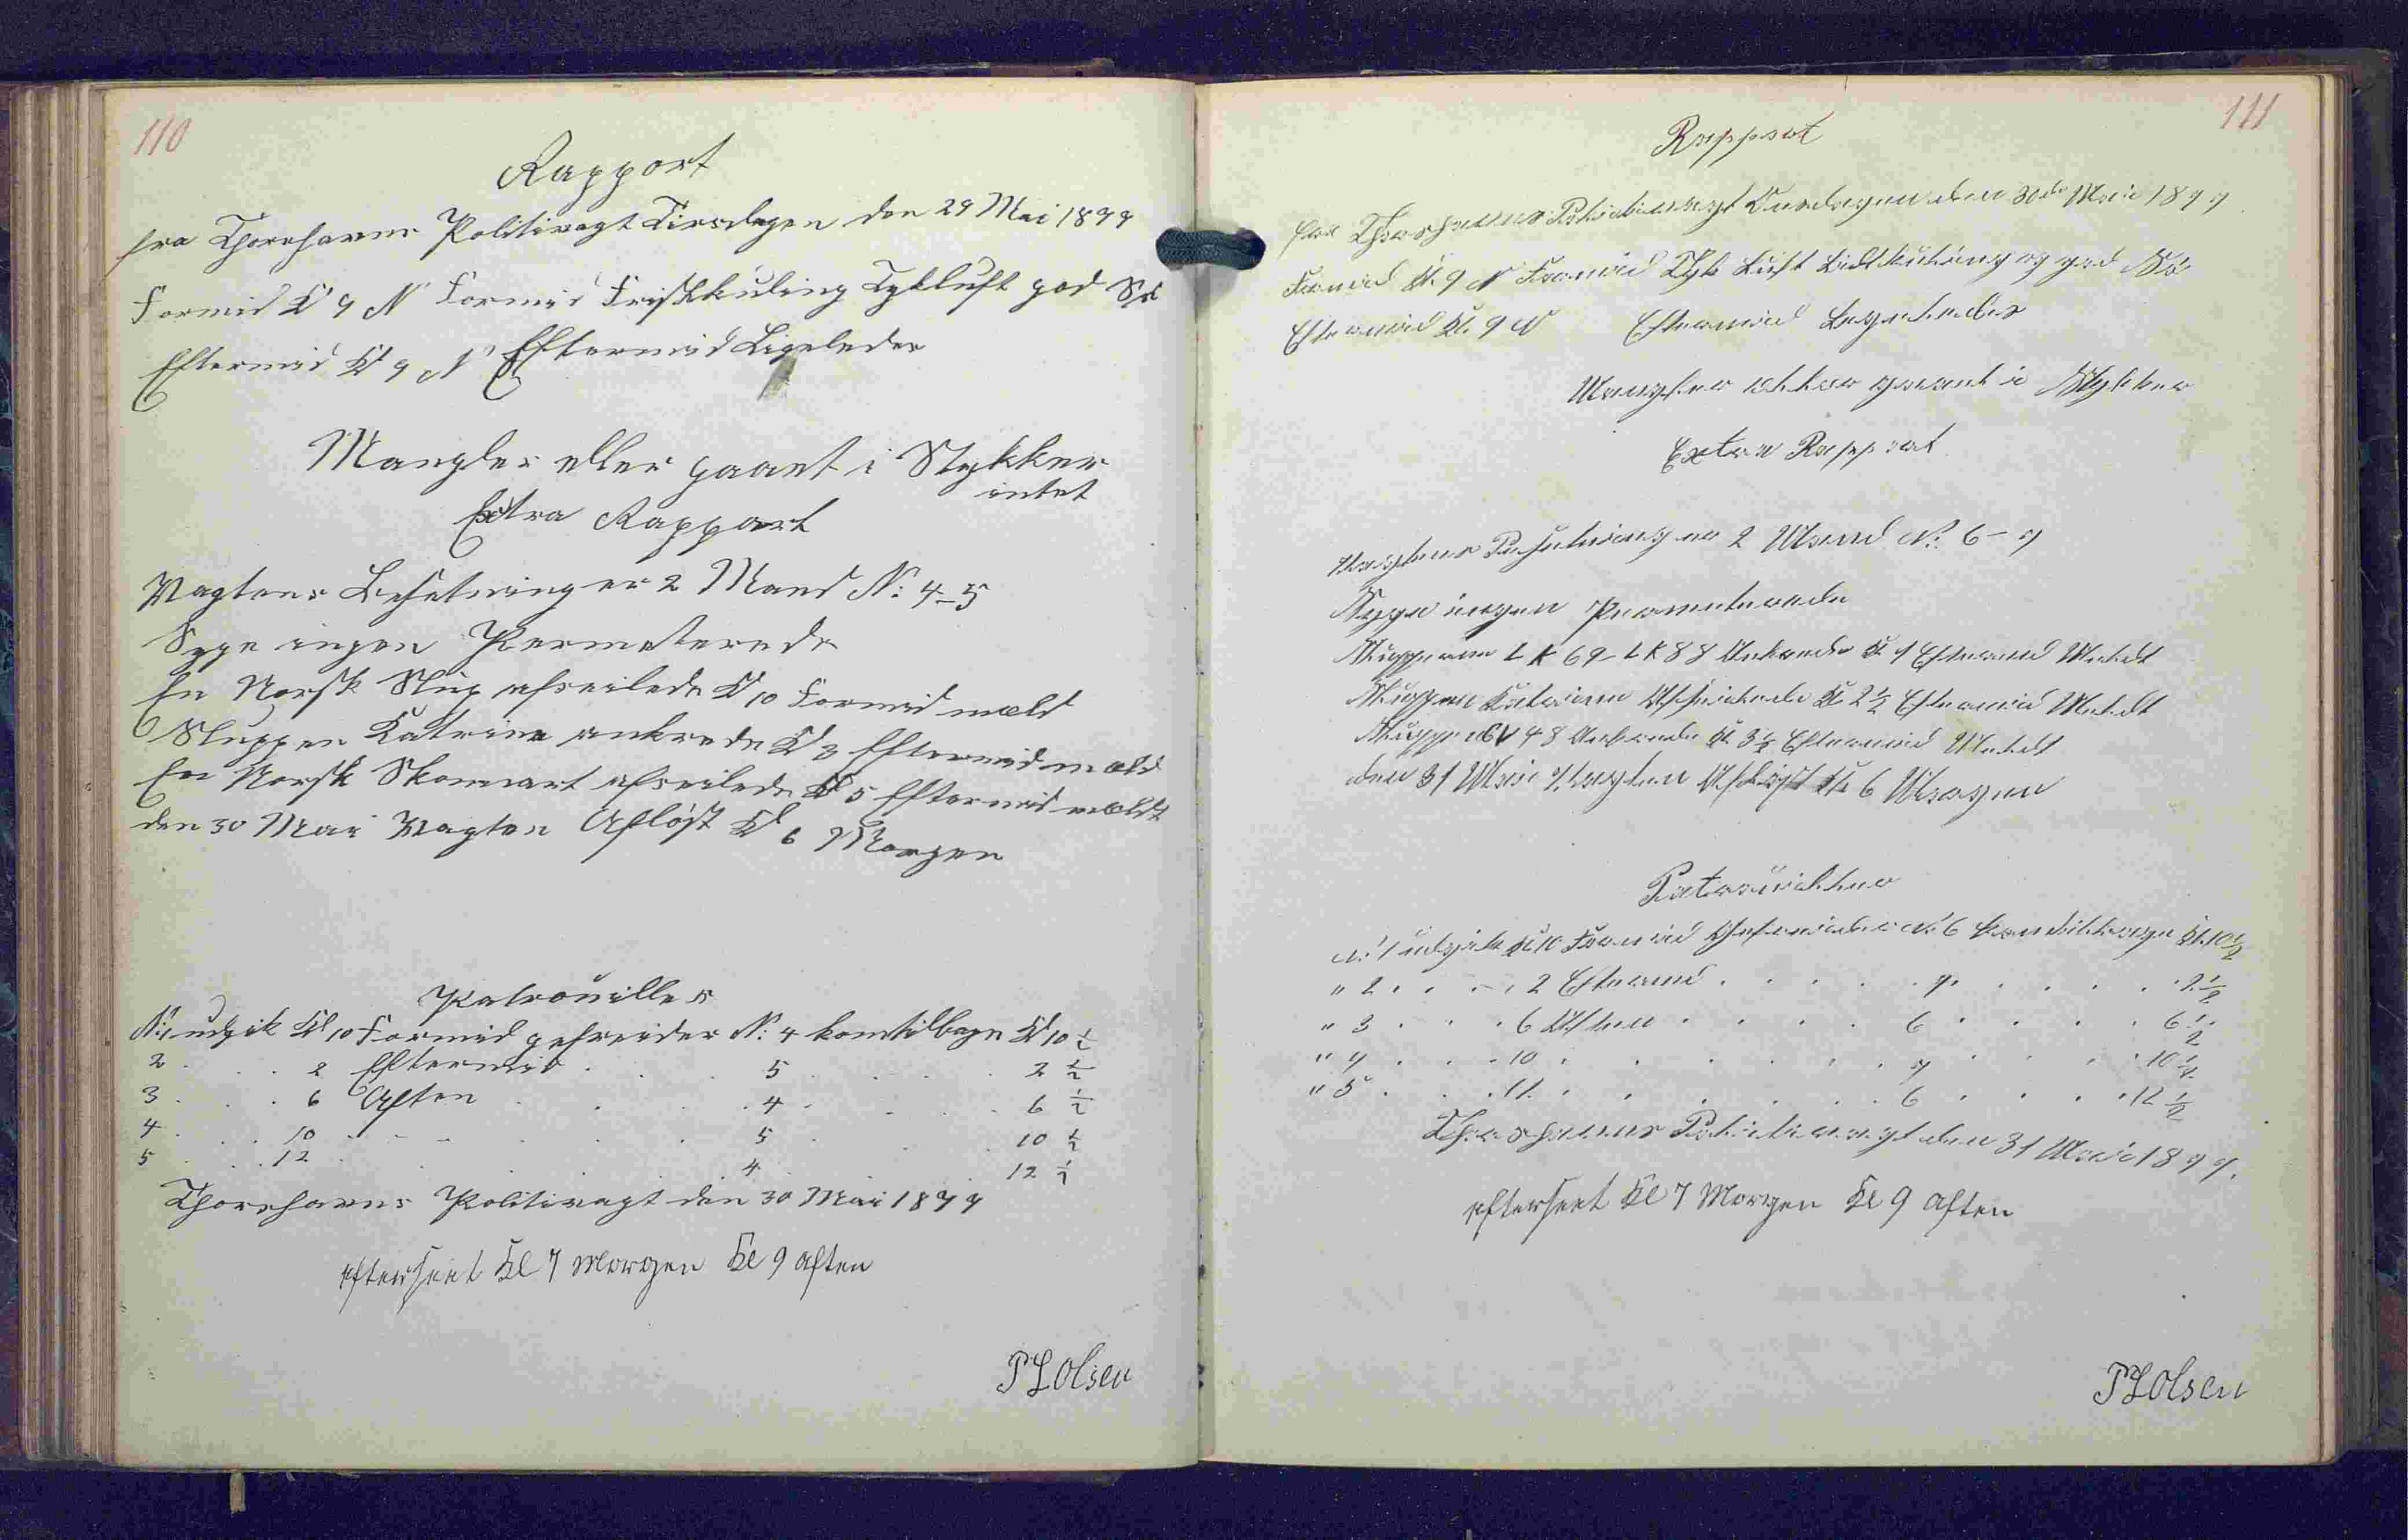 110
Rapport
fra Thorshavns Politivagt Tirsdagen den 29 Mai 1899
Formid Kl 9 N Formid Friskkuling Tykluft god Sø
Eftermid Kl 9 N Eftermid Ligeledes
Mangler eller gaaet i Stykker
intet
Extra Rapport
Vagtens Besetning er 2 Mand N: 4-5
Syge ingen Permeterede
En Norsk Slup afseilede Kl 10 Formid mæld
Sluppen Katrine ankrede Kl 3 Eftermid mæld
En Norsk Skonnart afseilede Kl 5 Eftermid mældt
den 30 Mai Vagten Afløst Kl 6 Morgen
Patrouiller
N: 1 udgik Kl 10 Formid gefreider N: 4 kom tilbage Kl 10 1/2
2 . . . 2 Eftermid . . . 5 . . . 2 1/2
3 . . . 6 Aften . . . 4 . . . 6 1/2
4 . . . 10 . . . 5 . . . 10 1/2
5 . . . 12 . . . 4 . . . 12 1/2
Thorshavns Politivagt den 30 Mai 1899
efterseet Kl 7 Morgen Kl 9 Aften
P L Olsen
111
Rapport
fra Thorshavns Politivagt Onsdagen den 30de Mai 1899
Formid Kl. 9 N Formid Tyk Luft Lidt Kuling og god Sø
Eftermid Kl. 9 N Eftermid Legeledes
Mangler eller gaaet i Stykker
Extra Rapport
Vagtens Besetning er 2 Mand N: 6-7
Syge ingen Permeterede
Slupperne LK 69 - LK 88 Ankrede Kl 1 Eftermid Meldt
Sluppen Katrine Afseilede Kl 2 1/2 Eftermid Meldt
Sluppen 48 Ankrede Kl 3 1/2 Eftermid Meldt
den 31 Mai Vagten Afløst Kl 6 Morgen
Patrouiller
N: 1 udgik Kl 10 Formid Gefreider N: 6 kom tillbage Kl. 10 1/2
" 2 . . . 2 Eftermid . . . 7 . . . 2 1/2
" 3 . . . 6 Aften . . . 6 . . . 6 1/2
" 4 . . . 10 . . . 7 . . . 10 1/2
" 5 . . . 12 . . . 6 . . . 12 1/2
Thorshavns Politivagt den 31 Mai 1899.
efterseet Kl 7 Morgen Kl 9 Aften
P L Olsen